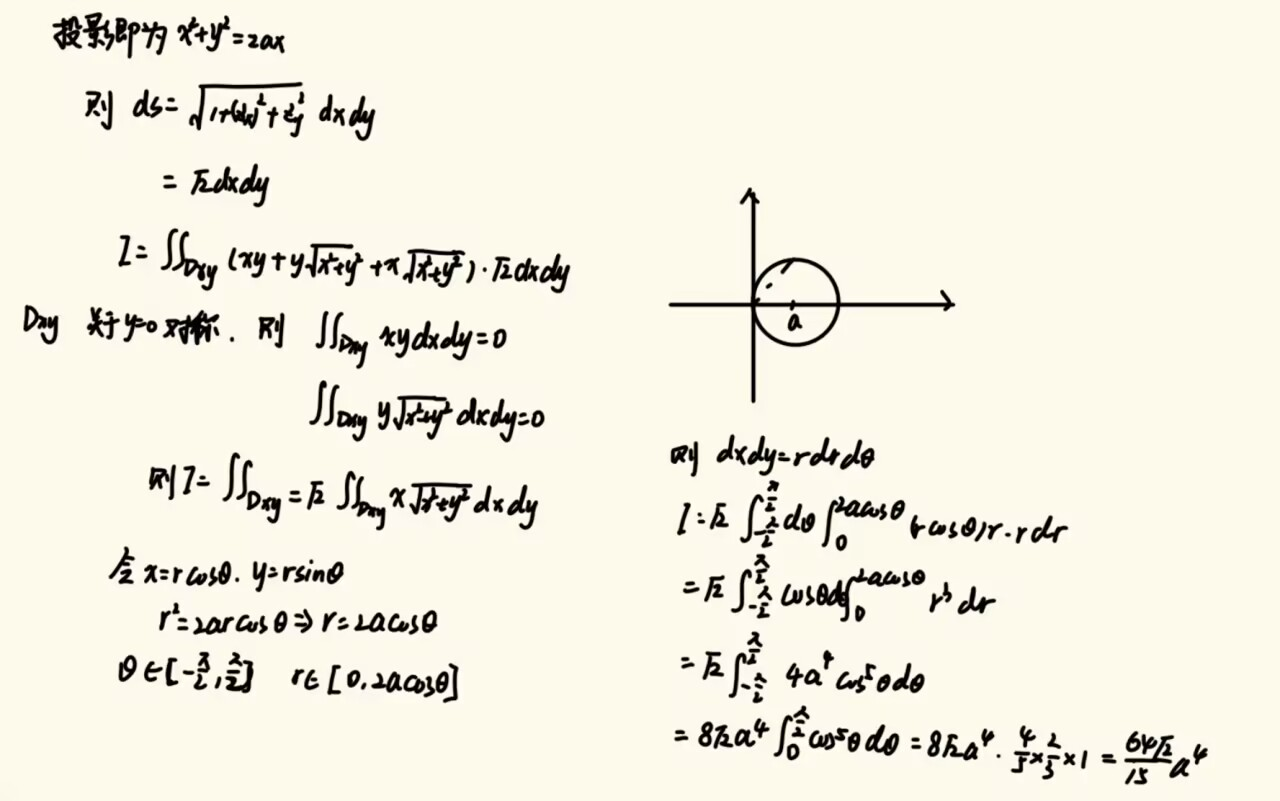 投影即为 x²+y²=2ax
则 ds=√(1+(z'x)²+z'y²) dxdy
= √2dxdy
I= ∬Dxy (xy+y√(x²+y²)+x√(x²+y²))·√2dxdy
Dxy 关于y=0对称. 则 ∬Dxy xydxdy=0
∬Dxy y√(x²+y²)dxdy=0
则I= ∬Dxy =√2 ∬Dxy x√(x²+y²)dxdy
令 x=rcosθ. y=rsinθ
r²=2arcosθ⇒r=2acosθ
θ∈[-π/2,π/2] r∈[0,2acosθ]
a
则 dxdy=rdrdθ
I=√2 ∫_{-π/2}^{π/2} dθ ∫_0^{2acosθ} (rcosθ)r·rdr
=√2 ∫_{-π/2}^{π/2} cosθdθ ∫_0^{2acosθ} r³dr
=√2 ∫_{-π/2}^{π/2} 4a⁴cos⁵θdθ
= 8√2a⁴ ∫_0^{π/2} cos⁵θdθ = 8√2a⁴·4/5×2/3×1 = 64√2/15 a⁴